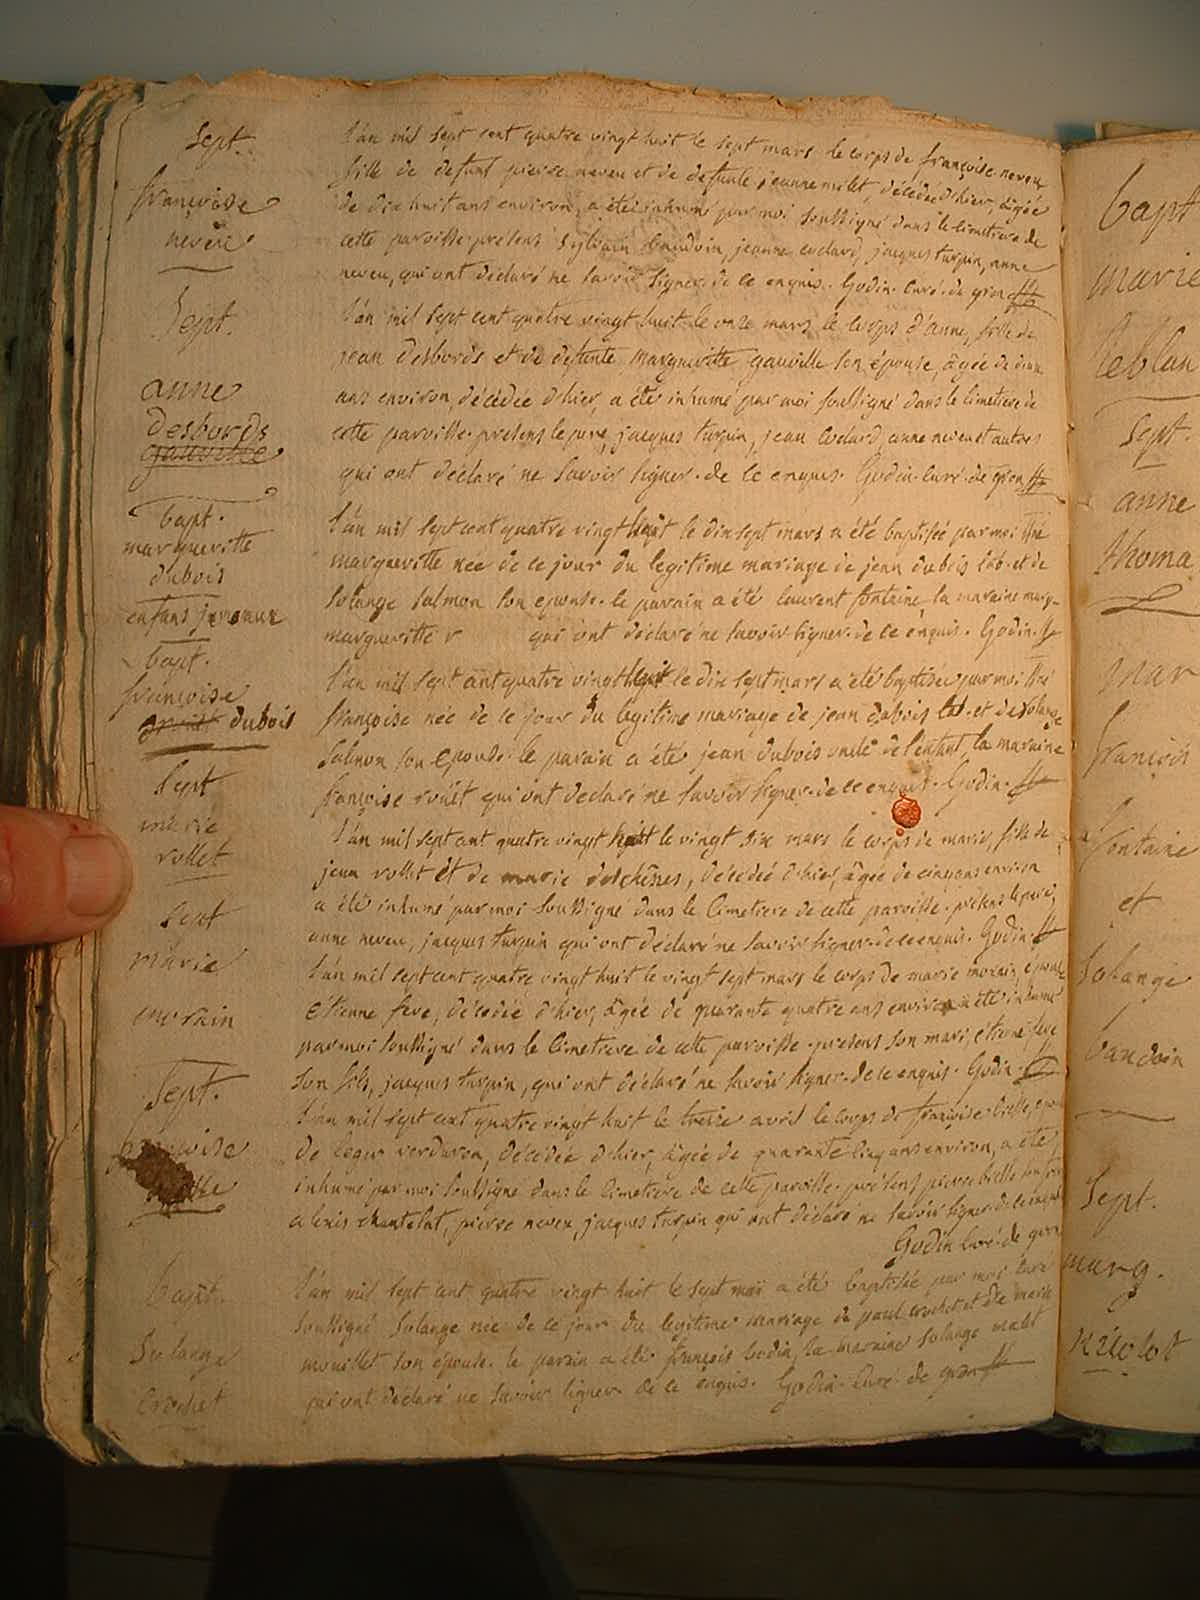 Sept.
françoise
neveu
l'an mil sept cent quatre vingt huit le sept mars le corps de françoise neveu
fille de defunt pierre neveu et de defunte jeanne milet, décédée d'hier, agée
de dix huit ans environ, a été inhumé par moi soussigné dans le cimetiere de
cette paroisse. présens sylvain baudoin, jeanne coclard, jacques turpin, anne
neveu, qui ont déclaré ne savoir signer. de ce enquis. Godin. curé. de gron
Sept.
anne
desbords
gauville
l'an mil sept cent quatre vingt huit le onze mars le corps d'anne, fille de
jean desbords et de defunte margueritte gauville son épouse, âgée de dix
ans environ, décédée d'hier, a été inhumé par moi soussigné dans le cimetiere de
cette paroisse. présens le pere, jacques turpin, jean coclard, anne neveu et autres
qui ont déclaré ne savoir signer. de ce enquis. Godin. curé. de gron
bapt.
margueritte
dubois
enfans jumeaux
l'an mil sept cent quatre vingt huit le dix sept mars a été baptisée par moi
margueritte née de ce jour du legitime mariage de jean dubois lab. et de
solange salmon son épouse. le parain a été laurent fontaine, la maraine marg-
marguerite r qui ont déclaré ne savoir signer. de ce enquis. Godin.
bapt.
françoise
dubois
l'an mil sept cent quatre vingt huit le dix sept mars a été baptisée par moi
françoise née de ce jour du legitime mariage de jean dubois lab. et de solange
Salmon son épouse. le parain a été jean dubois oncle de l'enfant, la maraine
françoise rouet qui ont déclaré ne savoir signer. de ce enquis. Godin.
Sept
marie
rollet
l'an mil sept cent quatre vingt huit le vingt six mars le corps de marie, fille de
jean rollet et de marie deschênes, décédée d'hier, âgée de cinq ans environ
a été inhumé par moi soussigné dans le cimetiere de cette paroisse. présens le pere,
anne neveu, jacques turpin qui ont déclaré ne savoir signer. de ce enquis. Godin
Sept
marie
morain
l'an mil sept cent quatre vingt huit le vingt sept mars le corps de marie morain, épouse
étienne feve, décédée d'hier, âgée de quarante quatre ans environ a été inhumé
par moi soussigné dans le cimetiere de cette paroisse. présens son mari, etienne feve
son fils, jacques turpin, qui ont déclaré ne savoir signer. de ce enquis. Godin.
Sept.
françoise
l'an mil sept cent quatre vingt huit le treize avril le corps de françoise bielle,
de leger verduron, décédée d'hier, âgée de quarante cinq ans environ, a été
inhumé par moi soussigné dans le cimetiere de cette paroisse. présens pierre bielle
alexis chantelat, pierre neveu, jacques turpin qui ont déclaré ne savoir signer. de ce enquis
Godin curé. de gron
Bapt.
Solange
Crochet
l'an mil sept cent quatre vingt huit le sept mai a été baptisée par moi curé
soussigné Solange née de ce jour du legitime mariage de paul crochet et de marie
mouillet son épouse. le parain a été françois bodin, la maraine solange malet
qui ont déclaré ne savoir signer de ce enquis. Godin. curé. de gron
bapt
marie
leblan
Sept.
anne
thoma
mar
françois
fontaine
et
Solange
baudoin
Sept.
marg.